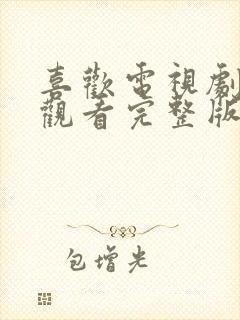 喜歡電視劇
觀看完整版
包增光